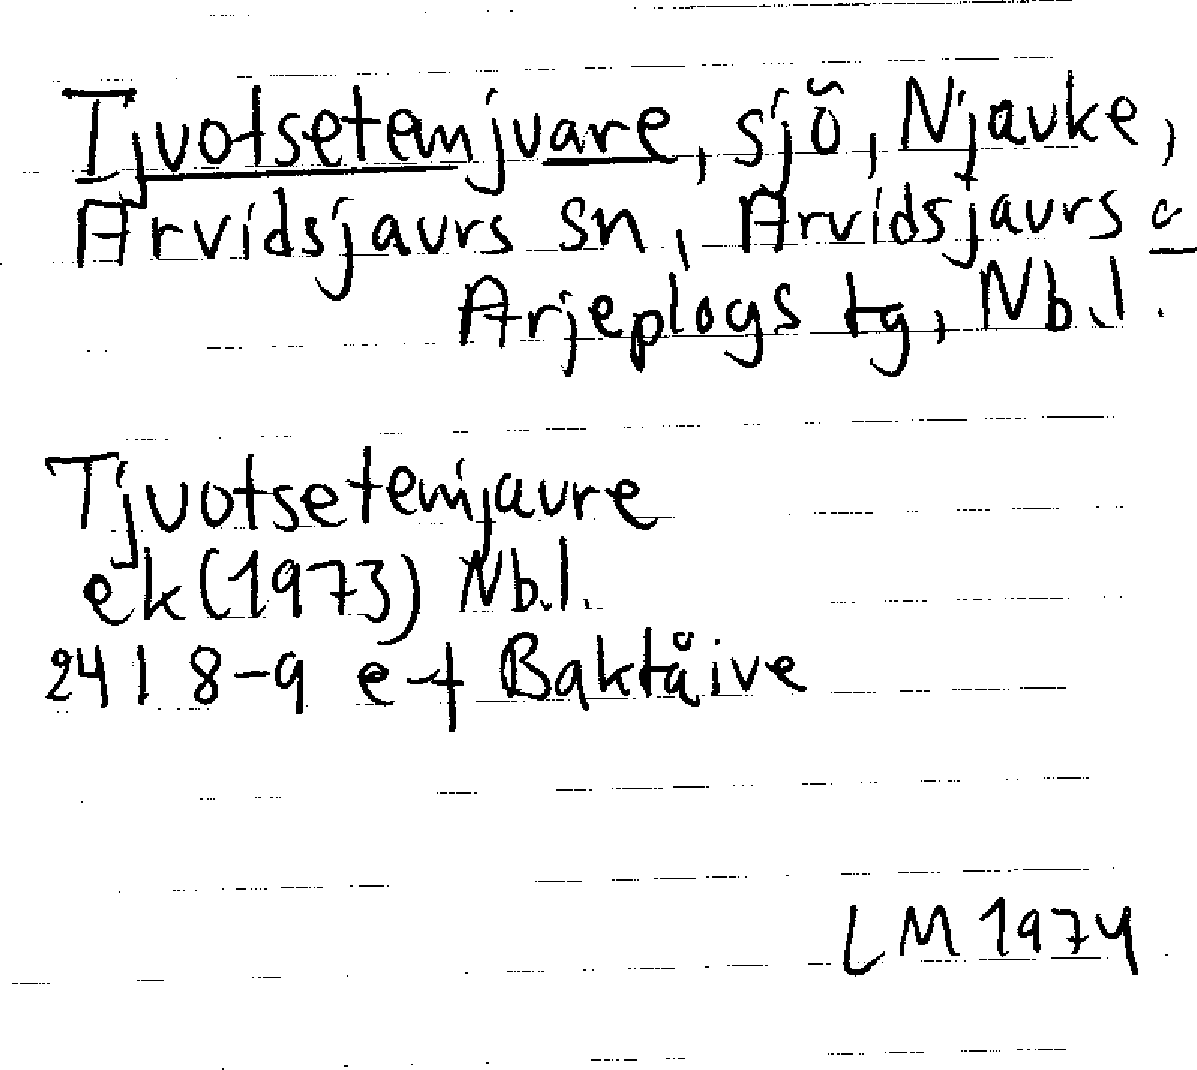 Tjuotsetemjuare, sjö, Njauke,
Arvidsjaurs sn, Arvidsjaurs o
Arjeplogs tg, Nb.l.
Tjuotsetemjaure
ek (1973) Nb.l.
24 I 8-9 e-f Baktåive
LM 1974